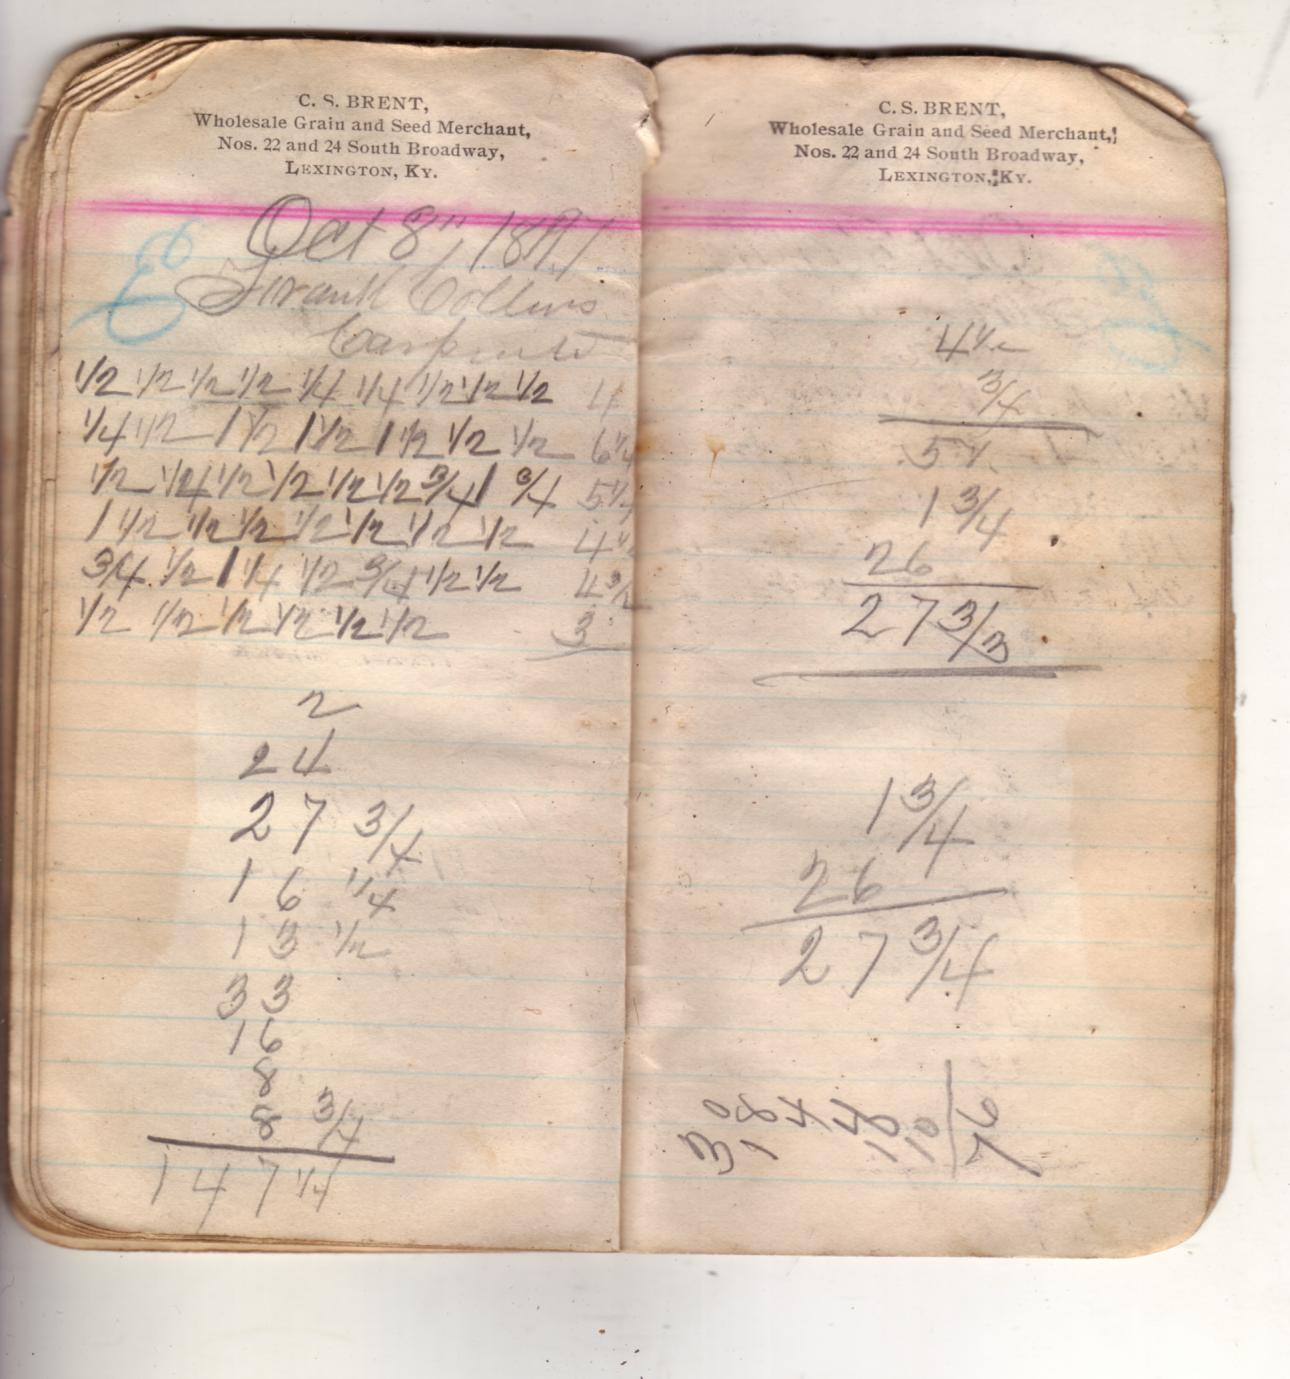 C. S. BRENT,
Wholesale Grain and Seed Merchant,
Nos. 22 and 24 South Broadway,
LEXINGTON, KY.
Oct 8", 1891
Frank Collins
Carpenter
1/2 1/2 1/2 1/2 1/4 1/4 1/2 1/2 1/2 4
1/4 1/2 1 1/2 1 1/2 1 1/2 1/2 1/2 6 1/4
1/2 1/4 1/2 1/2 1/2 1/2 3/4 1 3/4 5 1/4
1 1/2 1/2 1/2 1/2 1/2 1/2 1/2 4 1/2
3/4 1/2 1 1/4 1/2 3/4 1/2 1/2 4 3/4
1/2 1/2 1/2 1/2 1/2 1/2 3
2
24
27 3/4
16 1/4
13 1/2
33
16
8
8 3/4
147 1/4
C. S. BRENT,
Wholesale Grain and Seed Merchant,
Nos. 22 and 24 South Broadway,
LEXINGTON, KY.
4 1/2
3/4
5 1/4
1 3/4
26
27 3/3
1 3/4
26
27 3/4